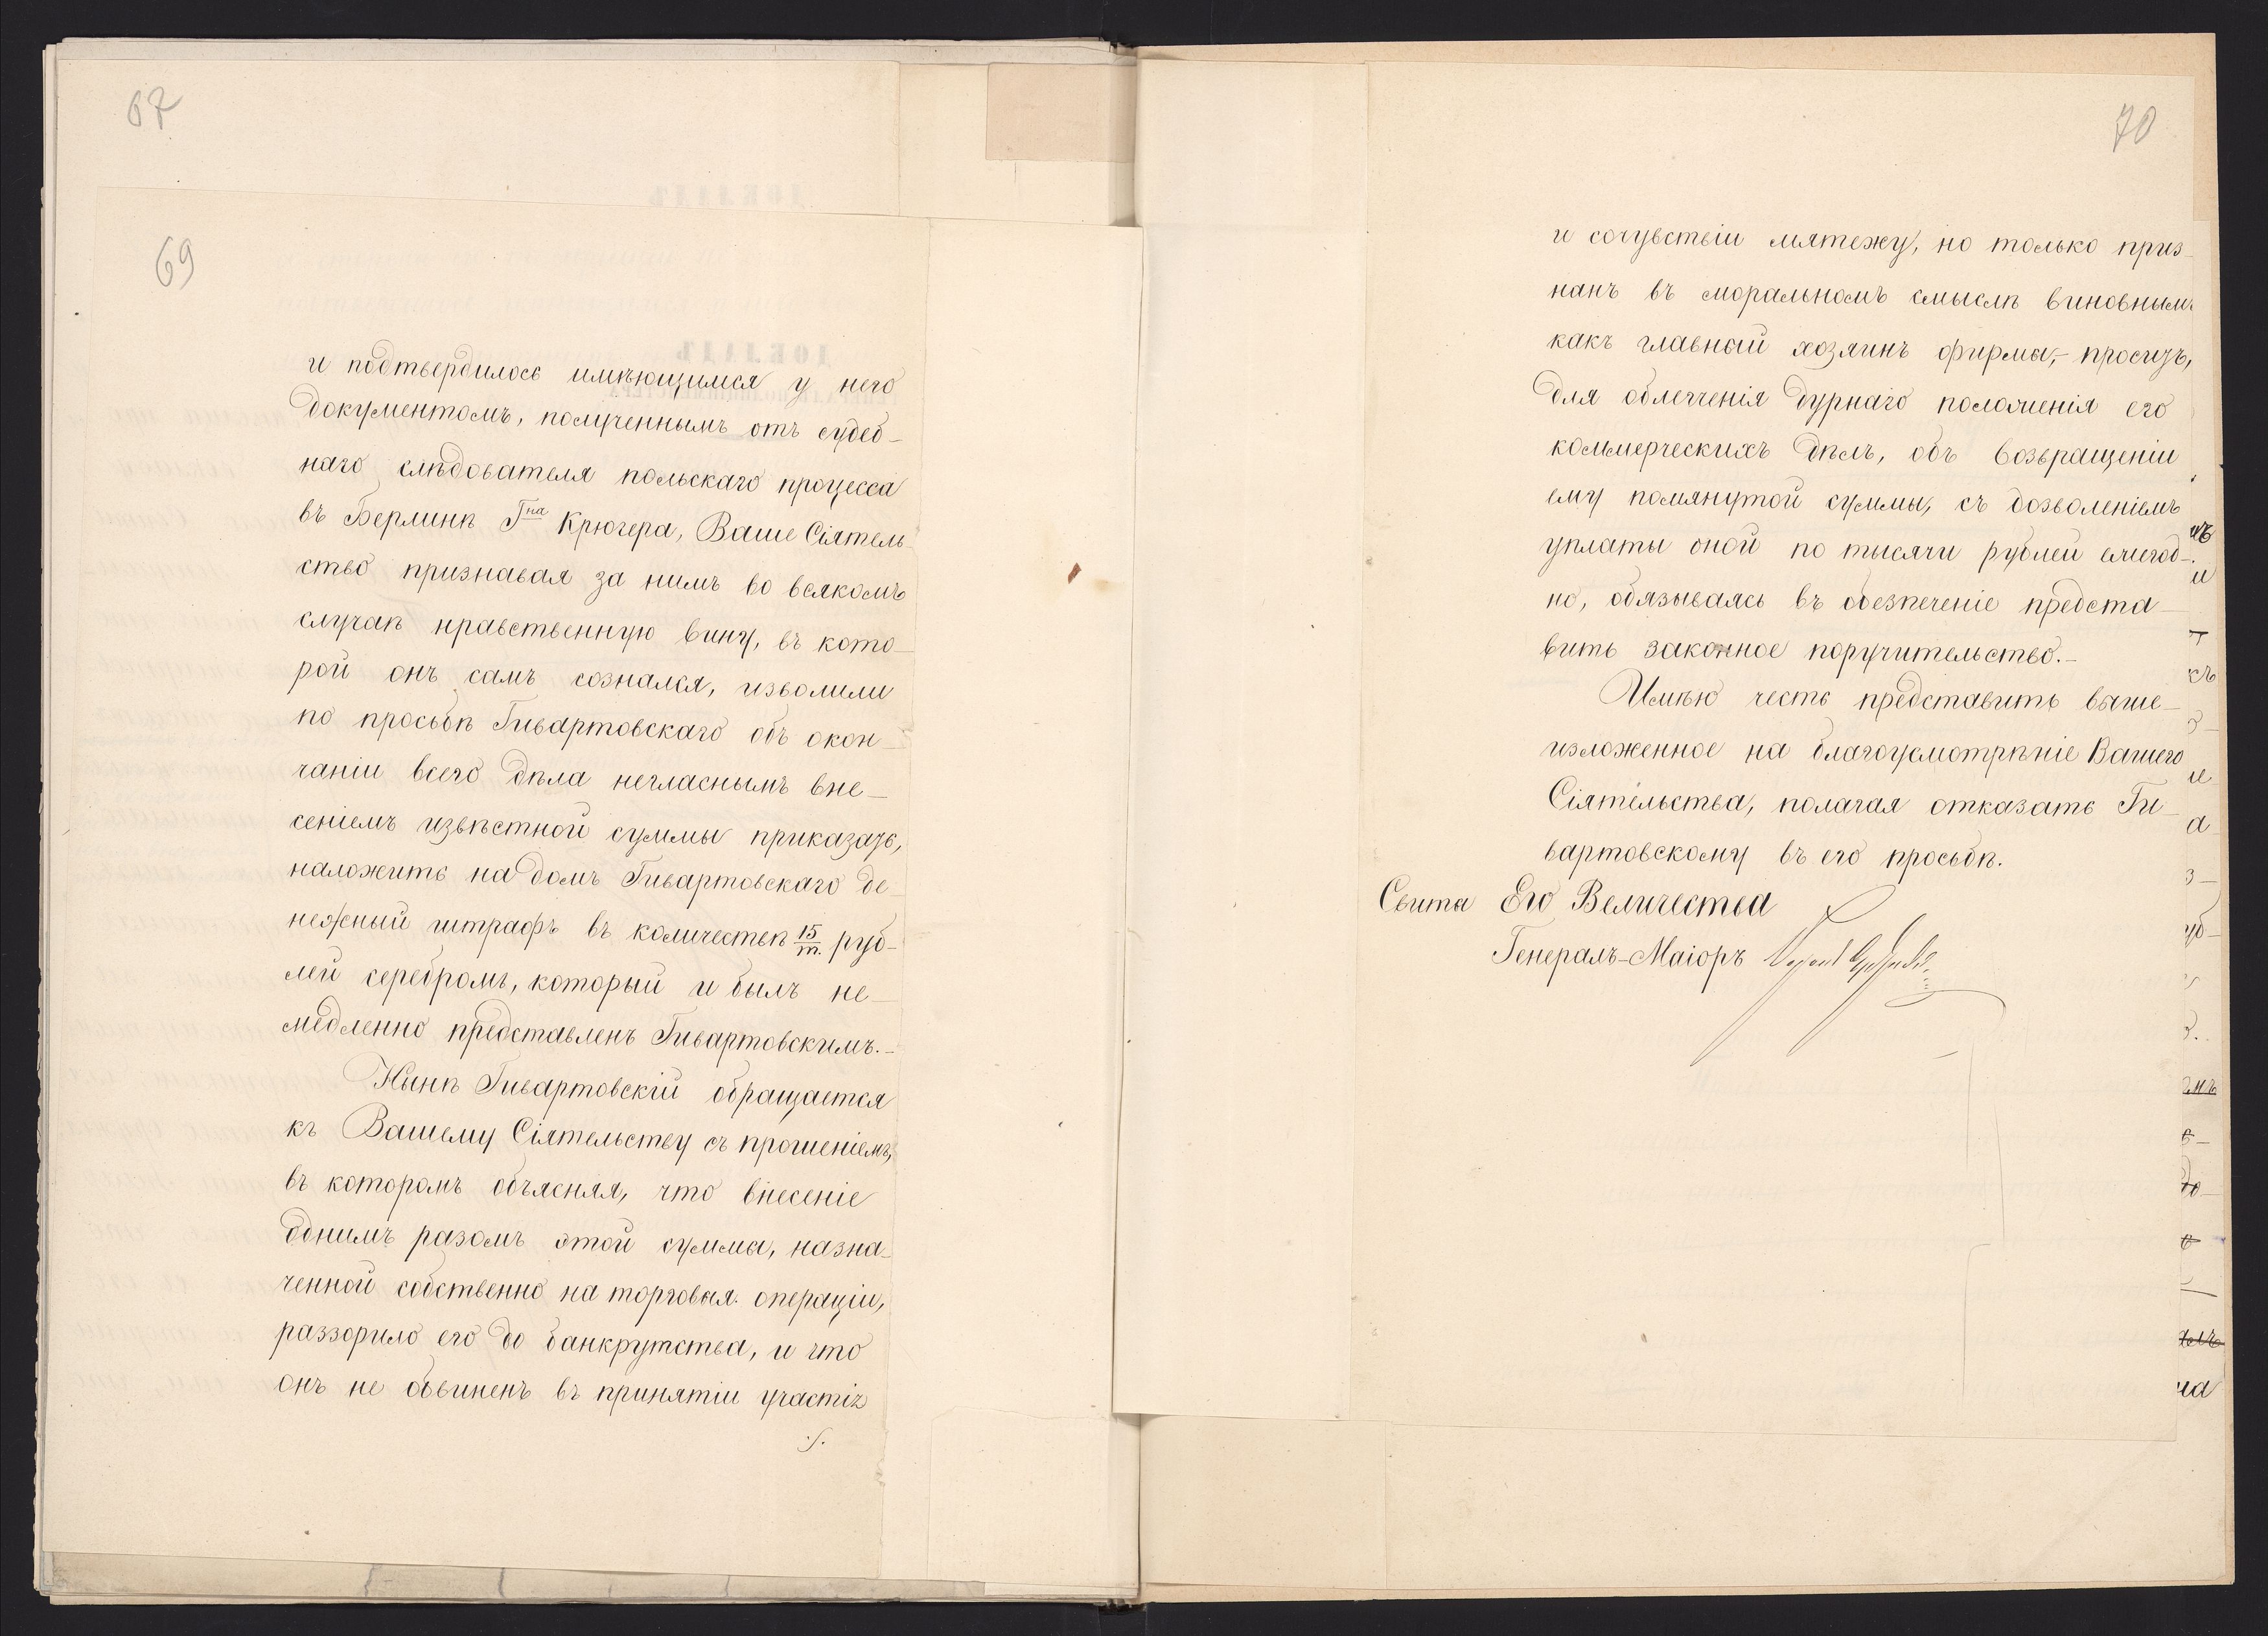 67
69
и подтвердилось имѣющимся у него
документомъ, полученнымъ отъ судеб-
наго слѣдователя польскаго процесса
въ Берлинѣ Гна Крюгера, Ваше Сіятель-
ство признавая за нимъ во всякомъ
случаѣ нравственную вину, въ кото-
рой онъ самъ сознался, изволили
по просьбѣ Гивартовскаго объ окон-
чаніи всего дѣла негласнымъ вне-
сеніемъ извѣстной суммы приказать,
наложить на домъ Гивартовскаго де-
нежный штрафъ въ количествѣ 15/т. руб-
лей серебромъ, который и былъ не-
медленно представленъ Гивартовскимъ.-
Нынѣ Гивартовскій обращается
къ Вашему Сіятельству съ прошеніемъ,
въ которомъ объясняя, что внесеніе
однимъ разомъ этой суммы, назна-
ченной собственно на торговыя операціи,
раззорило его до банкрутства, и что
онъ не обвиненъ въ принятіи участія
./.
70
и сочувствіи мятежу, но только приз-
нанъ въ моральномъ смыслѣ виновнымъ
какъ главный хозяинъ фирмы,- проситъ,
для облегченія дурнаго положенія его
коммерческихъ дѣлъ, объ возвращеніи
ему помянутой суммы, съ дозволеніемъ
уплаты оной по тысячи рублей ежегод-
но, обязываясь въ обезпеченіе предста-
вить законное поручительство.-
Имѣю честь представить выше-
изложенное на благоусмотрѣніе Вашего
Сіятельства, полагая отказать Ги-
вартовскому въ его просьбѣ.
Свиты Его Величества
Генералъ-Маіоръ